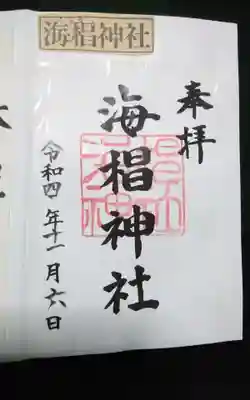 海椙神社
奉拝
海椙神社
令和四年十一月六日